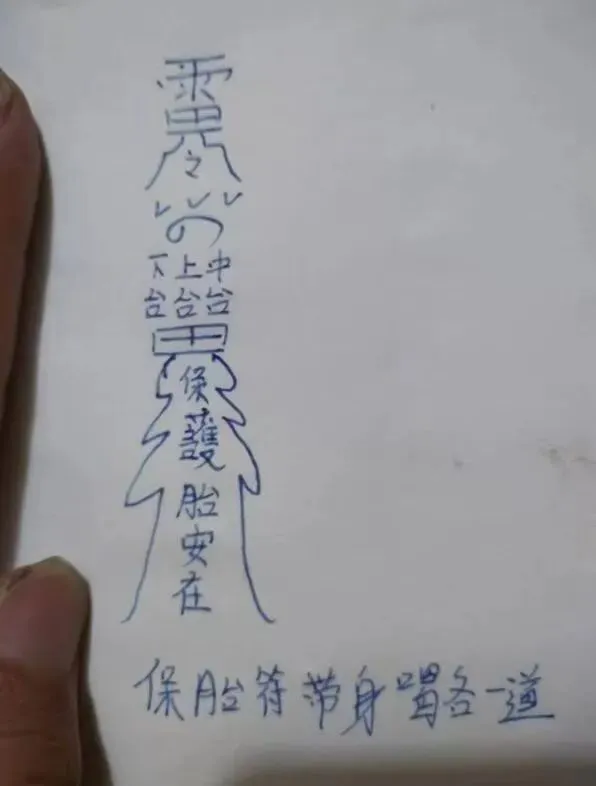 下台 上台 中台
保護胎安在
保胎符带身喝各一道